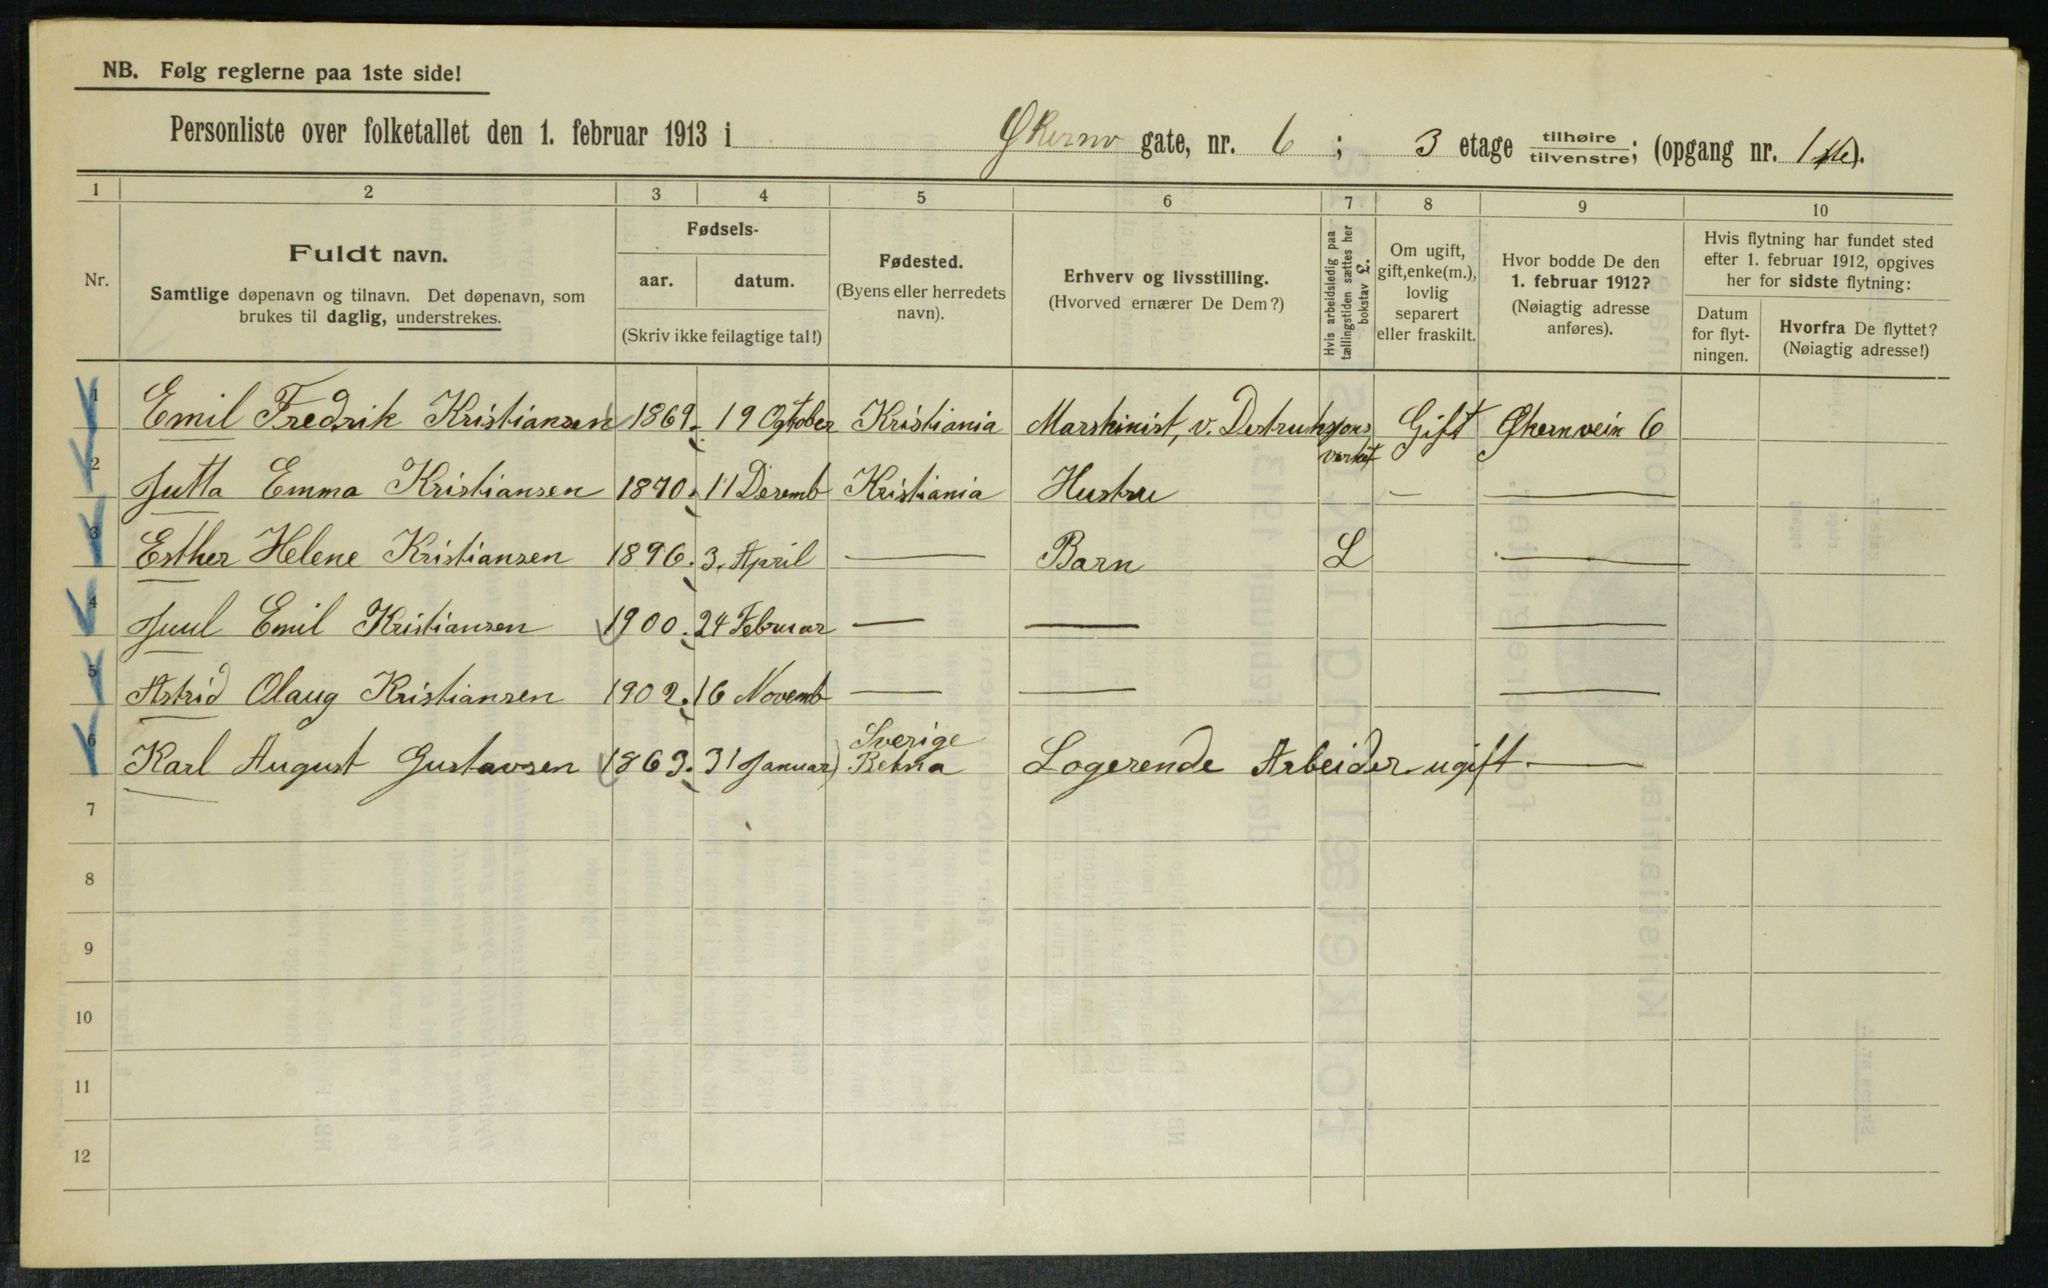 NB. Følg reglerne paa 1ste side!
Personliste over folketallet den 1. februar 1913 i Økernv gate, nr. 6; 3 etage tilhøire/tilvenstre; (opgang nr. 1ste).
1 2 3 4 5 6 7 8 9 10
Nr.
Fuldt navn.
Samtlige døpenavn og tilnavn. Det døpenavn, som
brukes til daglig, understrekes.
Fødsels-
aar. datum.
(Skriv ikke feilagtige tal!)
Fødested.
(Byens eller herredets
navn).
Erhverv og livsstilling.
(Hvorved ernærer De Dem?)
Hvis arbeidsledig paa
tællingstiden sættes her
bokstav L.
Om ugift,
gift, enke(m.),
lovlig
separert
eller fraskilt.
Hvor bodde De den
1. februar 1912?
(Nøiagtig adresse
anføres).
Hvis flytning har fundet sted
efter 1. februar 1912, opgives
her for sidste flytning:
Datum
for flyt-
ningen.
Hvorfra De flyttet?
(Nøiagtig adresse!)
1 Emil Fredrik Kristiansen 1869. 19 Ogtober Kristiania Marskinist, v. Destruksjons Gift Økernvein 6
verket
2 Jutta Emma Kristiansen 1870. 11 Decemb Kristiania Hustru — —
3 Esther Helene Kristiansen 1896. 3. April — Barn L —
4 Juul Emil Kristiansen 1900. 24 Februar — — —
5 Astrid Olaug Kristiansen 1902. 16 Novemb — — —
Sverige
6 Karl August Gustavsen 1863. 31 Januar Logerende Arbeider ugift —
7
8
9
10
11
12